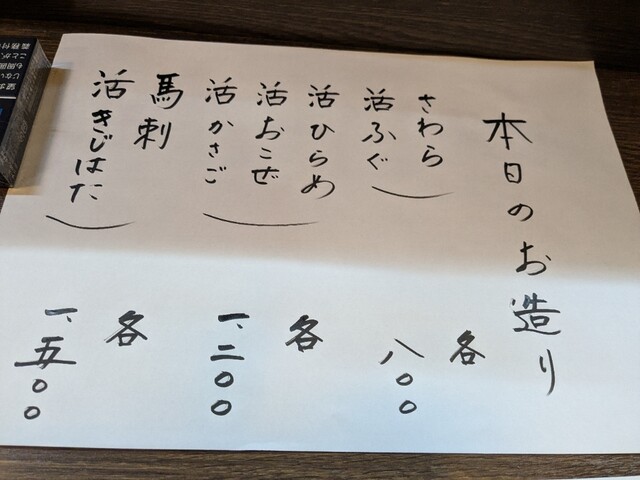 本日のお造り
さわら
活ふぐ
各
八〇〇
活ひらめ
活おこぜ
活かさご
各
一、二〇〇
馬刺
活きじはた
各
一、五〇〇